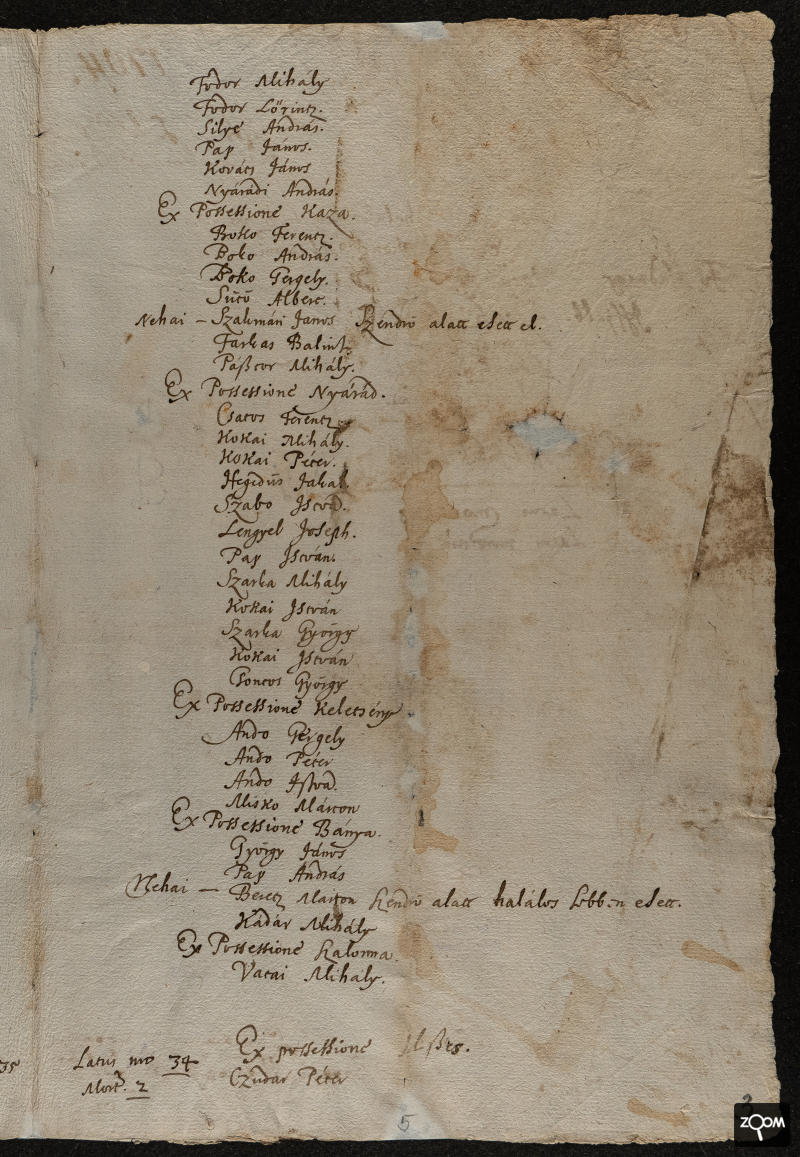 Fodor Mihaly
Fodor Lőrintz.
Silye András.
Pap János.
Kovács János
Nyárádi András.
Ex Possessione Kaza.
Boko Ferencz.
Boko András.
Boko Gergely.
Sütő Albert.
Nehai – Szakmári Janos Szendrő alatt esett el.
Farkas Balint.
Pásztor Mihály.
Ex Possessione Nyárád.
Csatos Ferencz
Kokai Mihály.
Kokai Péter.
Hegedüs Jakab
Szabo Istvá
Lengyel Joseph.
Pap István.
Szarka Mihály
Kokai István
Szarka György
Kokai István
Pontos György
Ex Possessione Keletsény.
Ando Gergely
Ando Péter
Ando Istvá
Misko Márton
Ex Possessione Bánya.
György János
Pap András
Nehai – Beretz Marton Szendrő alatt halálos sebben esett.
Kádár Mihály
Ex Possessione Kalonna.
Vatai Mihaly.
Ex possessione
Latus nro 34
Czudar Péter
Mort. 2
35
5
3
ZOOM